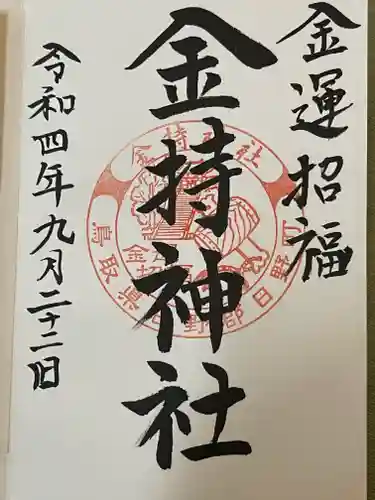 金運招福
金持神社
令和四年九月二十二日
金持神社
鳥取県日野郡日野町